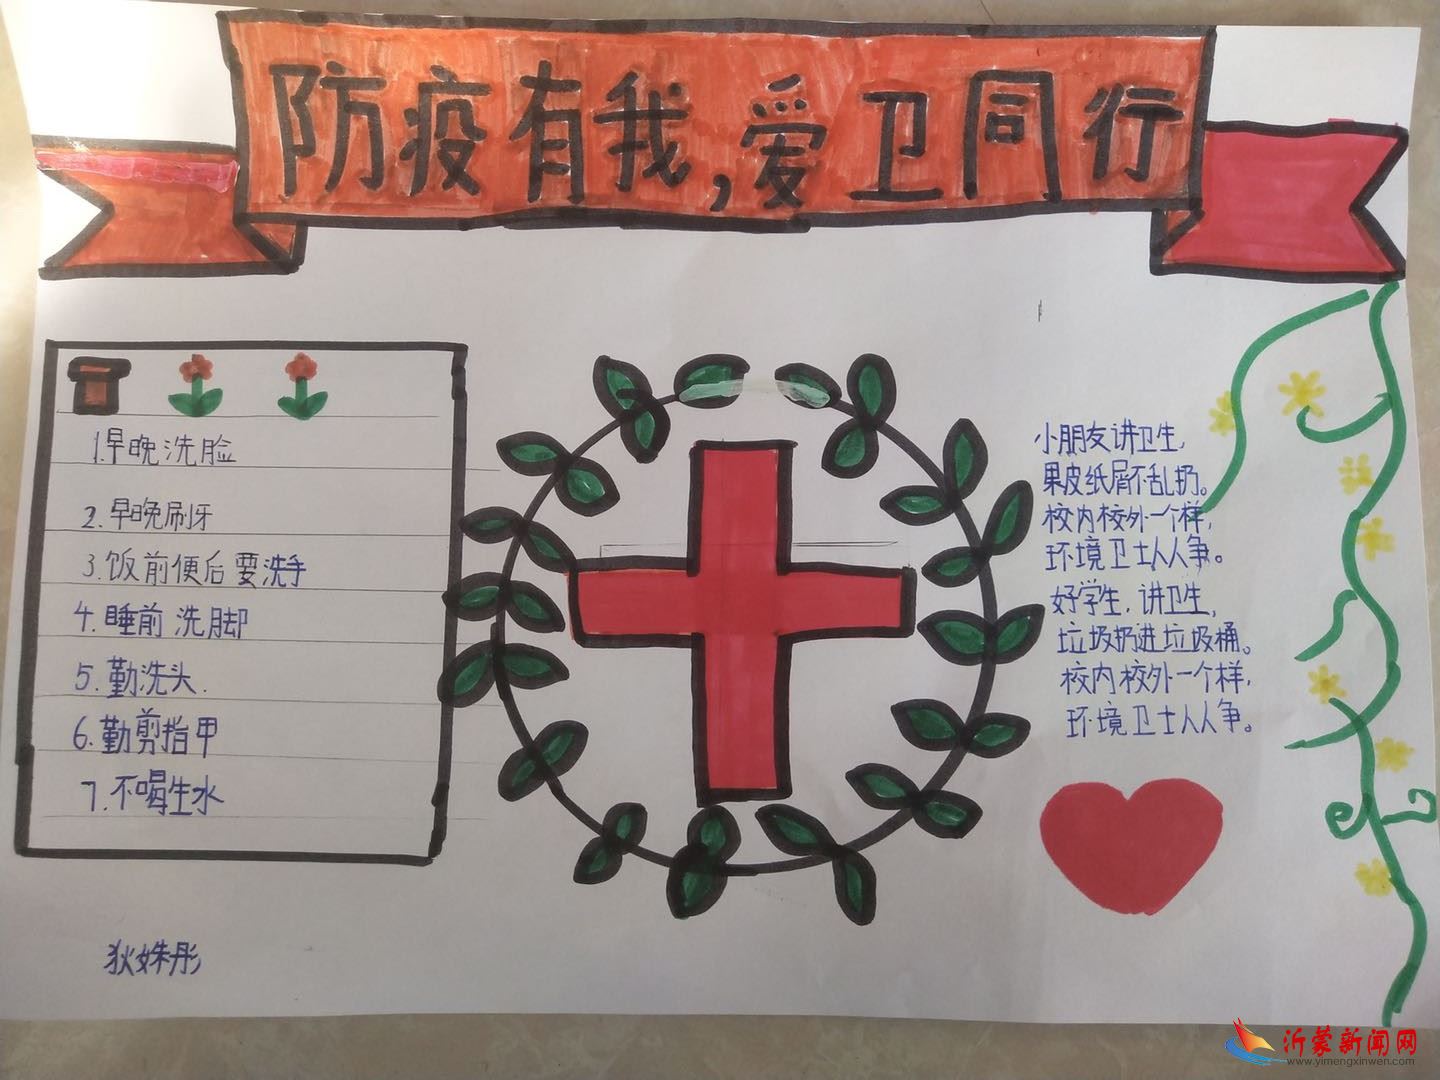 防疫有我,爱卫同行
1.早晚洗脸
2.早晚刷牙
3.饭前便后要洗手
4.睡前洗脚
5.勤洗头.
6.勤剪指甲
7.不喝生水
小朋友讲卫生,
果皮纸屑不乱扔。
校内校外一个样,
环境卫士人人争。
好学生,讲卫生,
垃圾扔进垃圾桶。
校内校外一个样,
环境卫士人人争。
狄姝彤
沂蒙新闻网
www.yimengxinwen.com